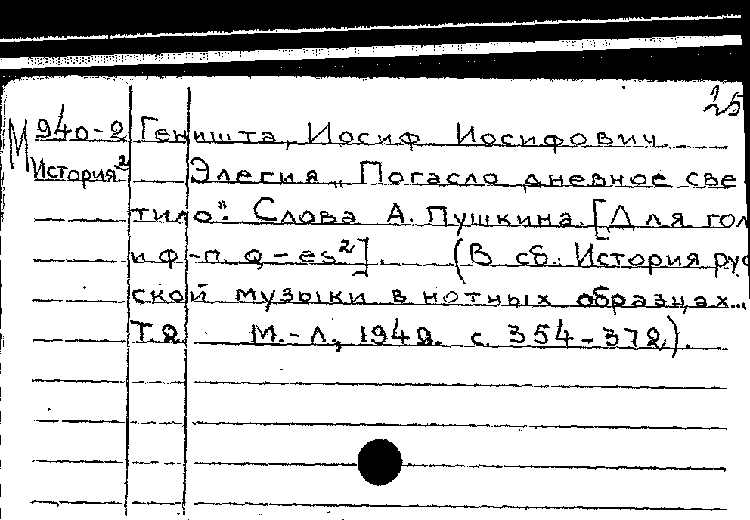 25
М 940-2 Геништа, Иосиф Иосифович.
История² Элегия „Погасло дневное све-
тило". Слова А. Пушкина. [Для гол
и ф-п. a - es²]. (В сб. История рус
ской музыки в нотных образцах...
Т.2. М.-Л., 1949. с. 354-372).